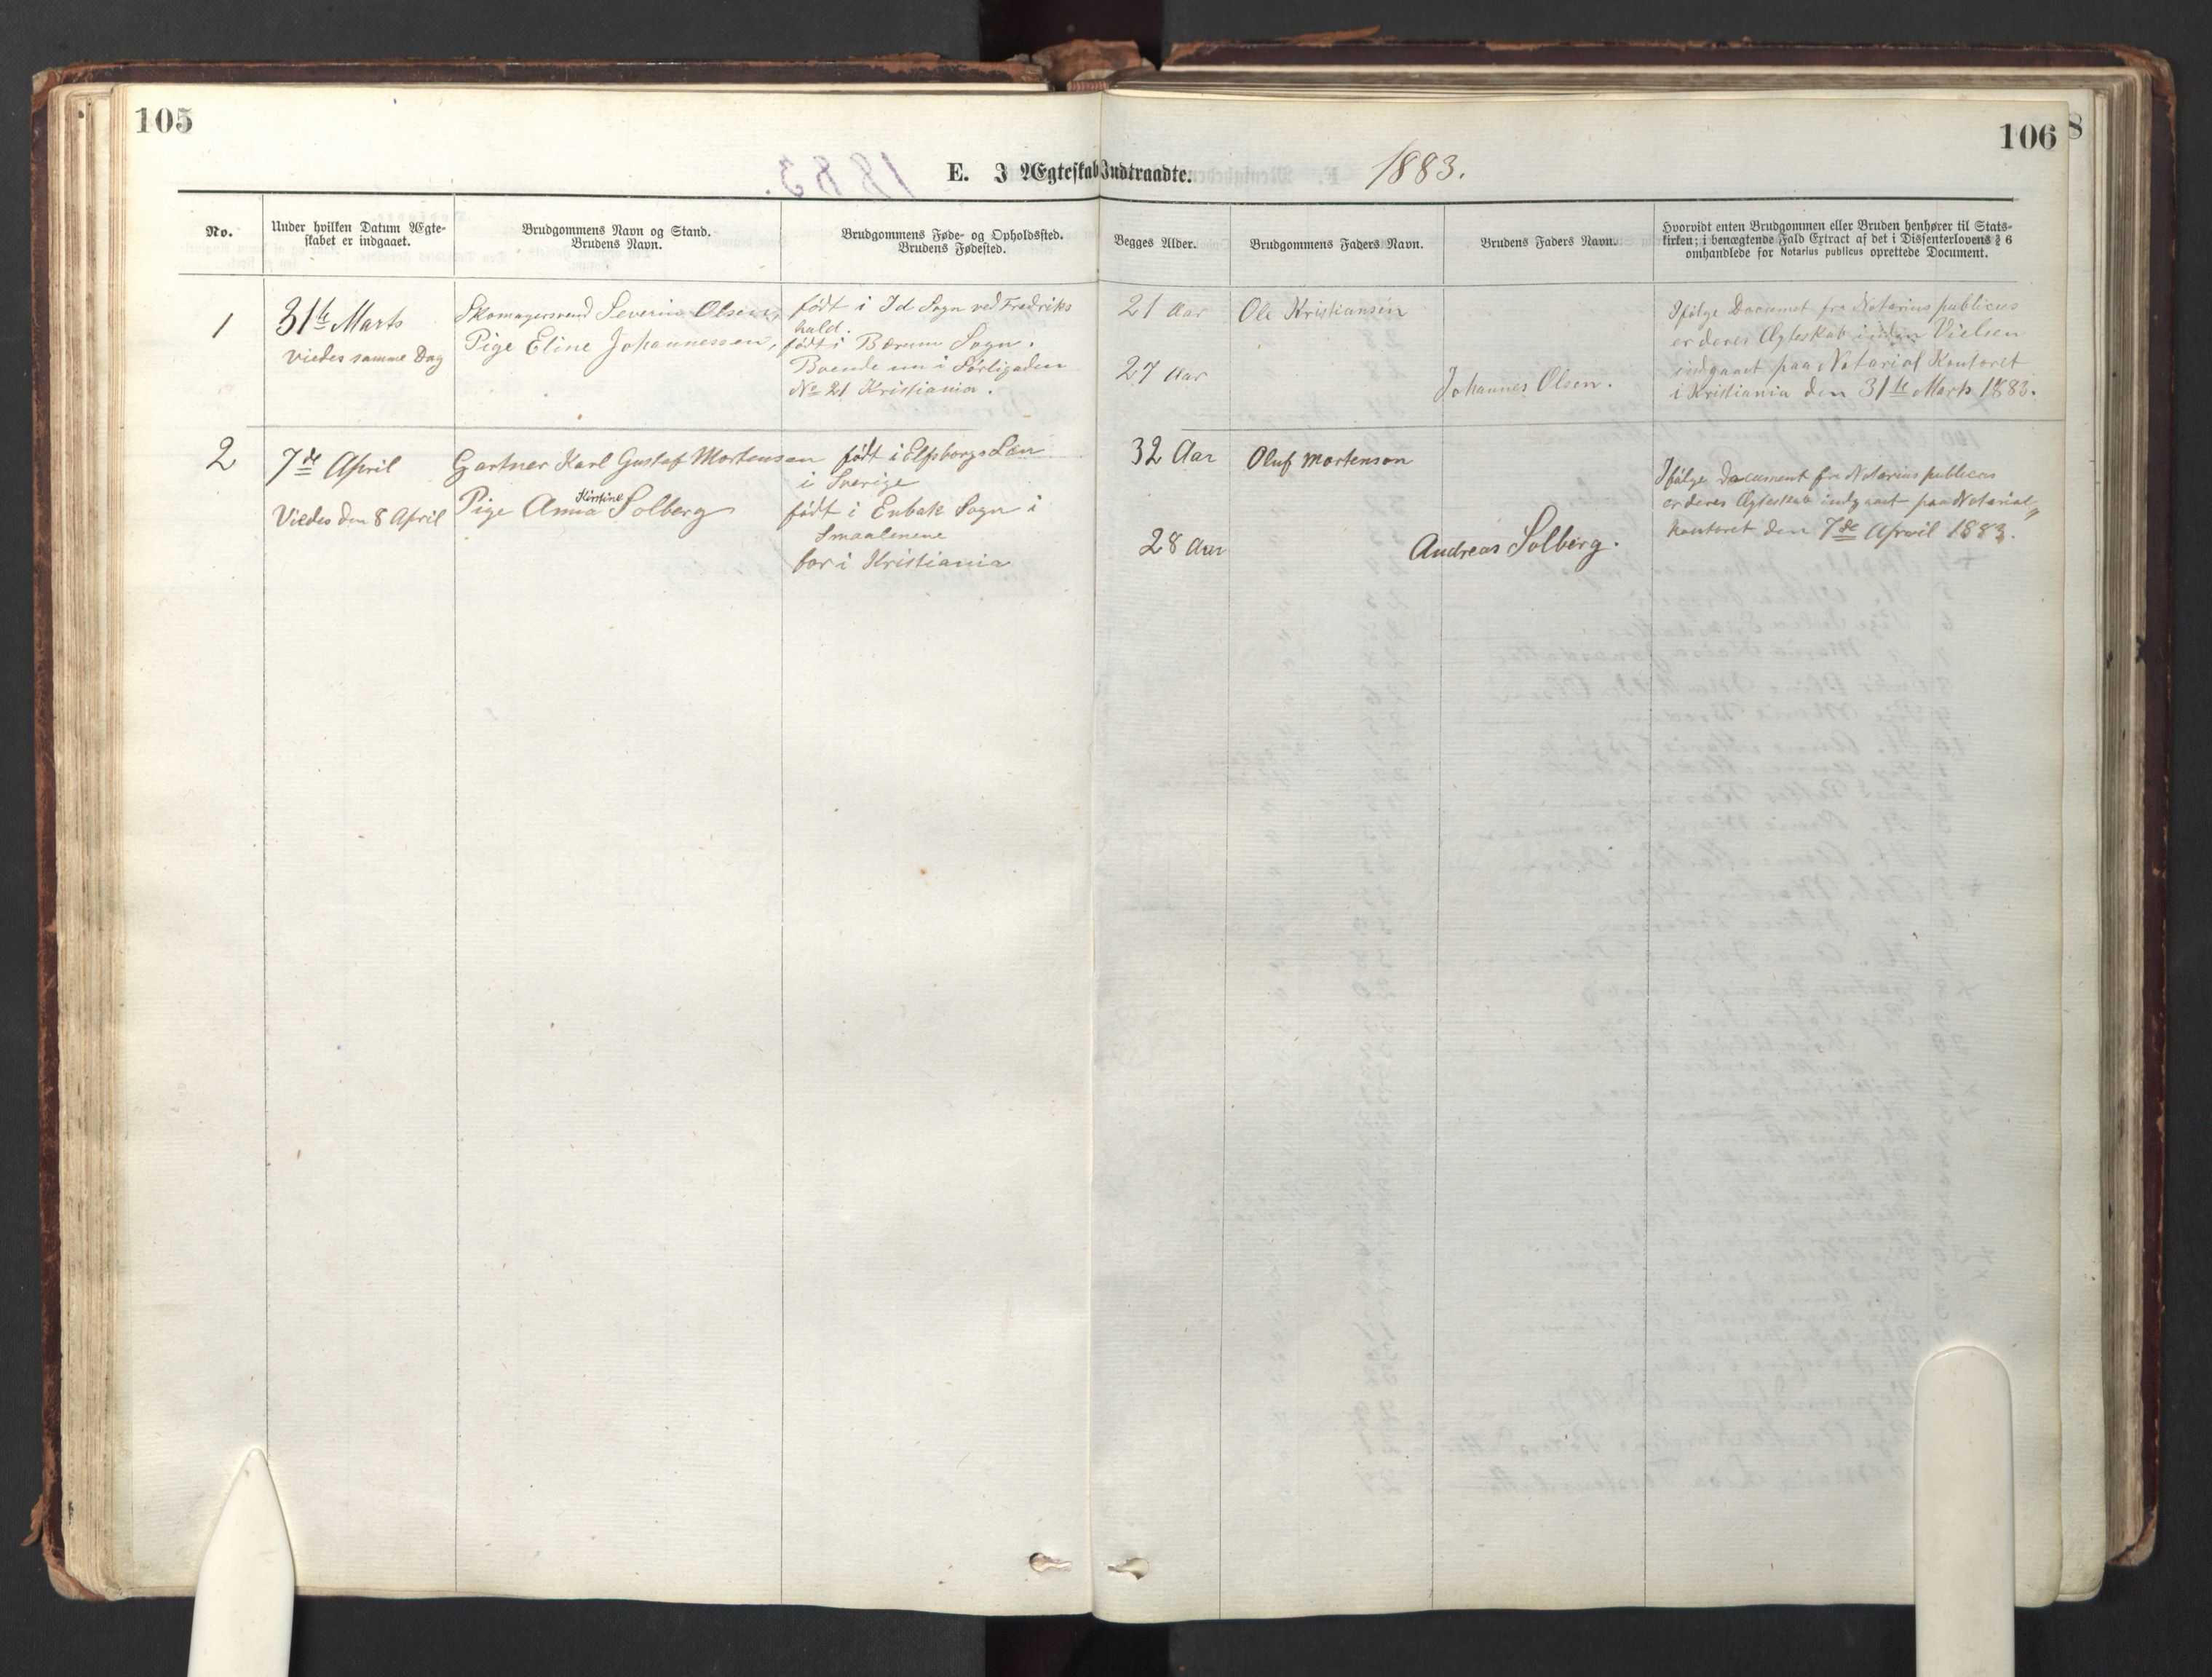 105
106
8
E. I Ægteskab Indtraadte.
1883.
No.
Under hvilken Datum Ægte-
skabet er indgaaet.
Brudgommens Navn og Stand.
Brudens Navn.
Brudgommens Føde- og Opholdssted.
Brudens Fødested.
Begges Alder.
Brudgommens Faders Navn.
Brudens Faders Navn.
Hvorvidt enten Brudgommen eller Bruden henhører til Stats-
kirken; i benægtende Fald Extract af det i Dissenterlovens § 6
omhandlede for Notarius publicus oprettede Document.
1
31te Marts
Viedes samme Dag
Skomagersvend Severin Olsen,
Pige Eline Johannessen,
født i Id Sogn ved Fredriks
hald.
født i Bærum Sogn.
Boende nu i
No 21 Kristiania.
21 Aar
27 Aar
Ole Kristiansen
Johannes Olsen.
Ifølge Document fra Notarius publicus
er deres Ægteskab inden Vielsen
indgaaet paa Notarial Kontoret
i Kristiania den 31te Marts 1883.
2
7de April
Viedes den 8 April
Gartner Karl Gustaf Mortensen
Pige Anna Kirstine Solberg
født i Elfsborgs Län
i Sverige
født i Enbak Sogn i
Smaalenene
bor i Kristiania
32 Aar
28 Aar
Oluf Mortenson
Andreas Solberg.
Ifølge Document fra Notarius publicus
er deres Ægteskab indgaaet paa Notarial„
kontoret den 7de April 1883.